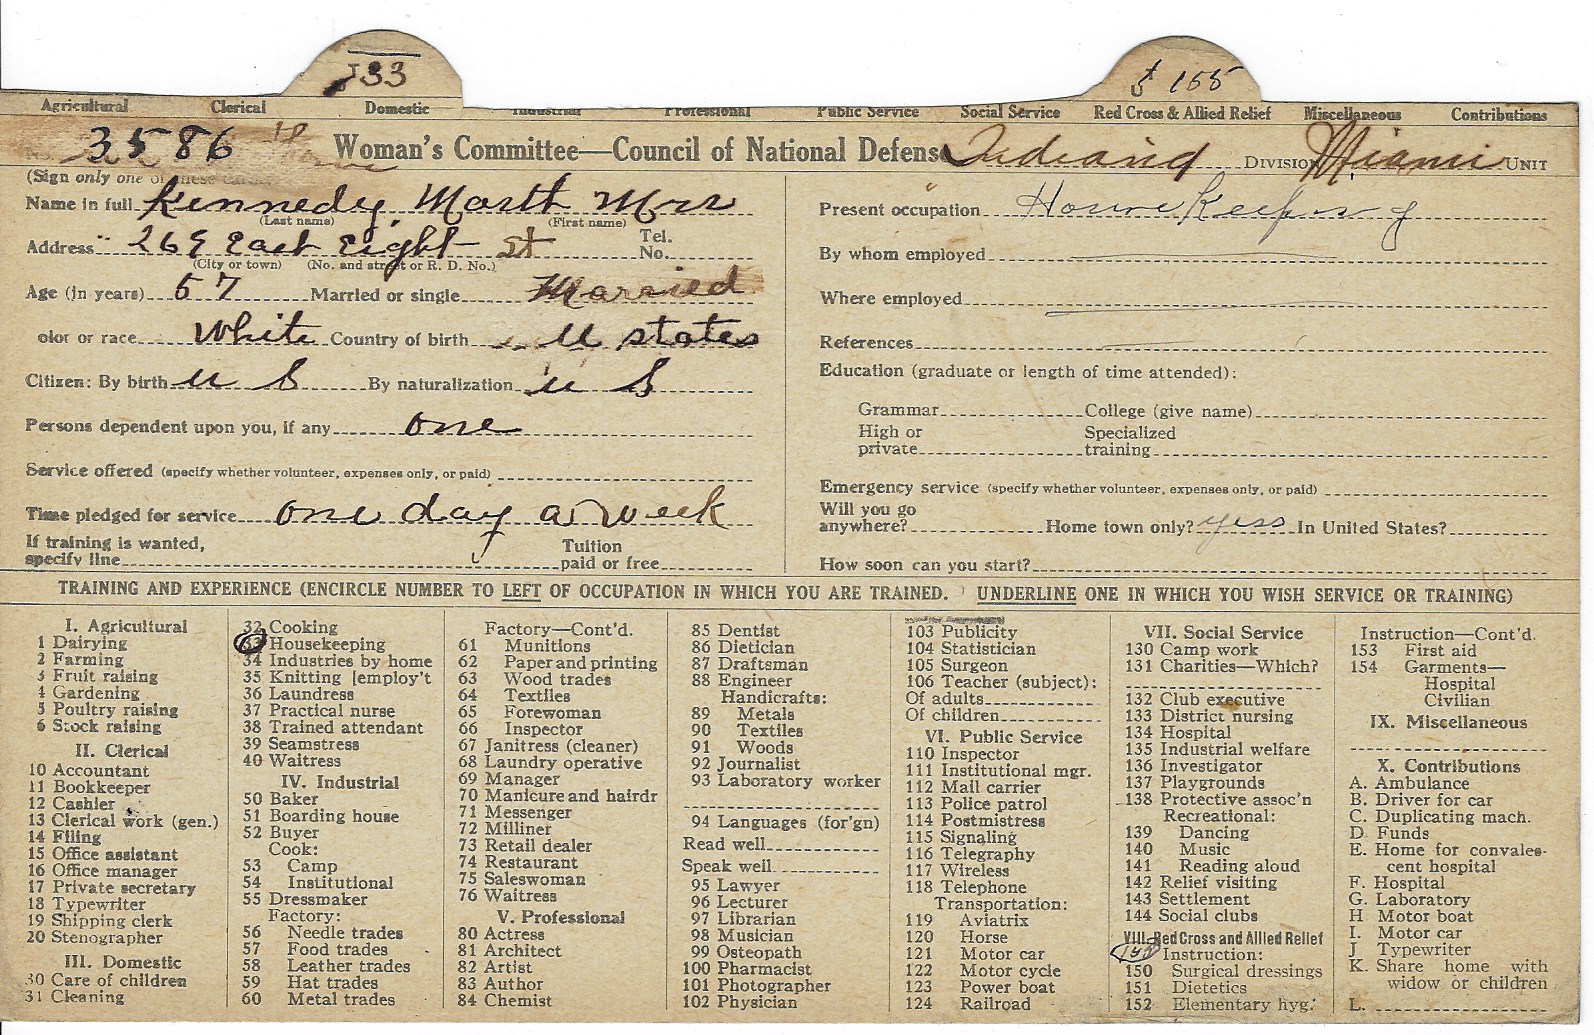 33
155
Agricultural Clerical Domestic Industrial Professional Public Service Social Service Red Cross & Allied Relief Miscellaneous Contributions
3586
Woman's Committee—Council of National Defense Indiana DIVISION Miami UNIT
(Sign only one of these cards)
Name in full Kennedy, Marth Mrs
(Last name) (First name)
Address 269 East Eight St Tel. No.
(City or town) (No. and street or R. D. No.)
Age (in years) 57 Married or single Married
olor or race White Country of birth U states
Citizen: By birth U S By naturalization U S
Persons dependent upon you, if any one
Service offered (specify whether volunteer, expenses only, or paid)
Time pledged for service one day a week
If training is wanted,
specify line Tuition paid or free
Present occupation House Keeping
By whom employed
Where employed
References
Education (graduate or length of time attended):
Grammar College (give name)
High or private Specialized training
Emergency service (specify whether volunteer, expenses only, or paid)
Will you go anywhere? Home town only? yess In United States?
How soon can you start?
TRAINING AND EXPERIENCE (ENCIRCLE NUMBER TO LEFT OF OCCUPATION IN WHICH YOU ARE TRAINED. UNDERLINE ONE IN WHICH YOU WISH SERVICE OR TRAINING)
I. Agricultural
1 Dairying
2 Farming
3 Fruit raising
4 Gardening
5 Poultry raising
6 Stock raising
II. Clerical
10 Accountant
11 Bookkeeper
12 Cashier
13 Clerical work (gen.)
14 Filing
15 Office assistant
16 Office manager
17 Private secretary
18 Typewriter
19 Shipping clerk
20 Stenographer
III. Domestic
30 Care of children
31 Cleaning
32 Cooking
33 Housekeeping
34 Industries by home
35 Knitting [employ't
36 Laundress
37 Practical nurse
38 Trained attendant
39 Seamstress
40 Waitress
IV. Industrial
50 Baker
51 Boarding house
52 Buyer
Cook:
53 Camp
54 Institutional
55 Dressmaker
Factory:
56 Needle trades
57 Food trades
58 Leather trades
59 Hat trades
60 Metal trades
Factory—Cont'd.
61 Munitions
62 Paper and printing
63 Wood trades
64 Textiles
65 Forewoman
66 Inspector
67 Janitress (cleaner)
68 Laundry operative
69 Manager
70 Manicure and hairdr
71 Messenger
72 Milliner
73 Retail dealer
74 Restaurant
75 Saleswoman
76 Waitress
V. Professional
80 Actress
81 Architect
82 Artist
83 Author
84 Chemist
85 Dentist
86 Dietician
87 Draftsman
88 Engineer
Handicrafts:
89 Metals
90 Textiles
91 Woods
92 Journalist
93 Laboratory worker
94 Languages (for'gn)
Read well
Speak well
95 Lawyer
96 Lecturer
97 Librarian
98 Musician
99 Osteopath
100 Pharmacist
101 Photographer
102 Physician
103 Publicity
104 Statistician
105 Surgeon
106 Teacher (subject):
Of adults
Of children
VI. Public Service
110 Inspector
111 Institutional mgr.
112 Mail carrier
113 Police patrol
114 Postmistress
115 Signaling
116 Telegraphy
117 Wireless
118 Telephone
Transportation:
119 Aviatrix
120 Horse
121 Motor car
122 Motor cycle
123 Power boat
124 Railroad
VII. Social Service
130 Camp work
131 Charities—Which?
132 Club executive
133 District nursing
134 Hospital
135 Industrial welfare
136 Investigator
137 Playgrounds
138 Protective assoc'n
Recreational:
139 Dancing
140 Music
141 Reading aloud
142 Relief visiting
143 Settlement
144 Social clubs
VIII. Red Cross and Allied Relief
155 Instruction:
150 Surgical dressings
151 Dietetics
152 Elementary hyg.
Instruction—Cont'd.
153 First aid
154 Garments—
Hospital
Civilian
IX. Miscellaneous
X. Contributions
A. Ambulance
B. Driver for car
C. Duplicating mach.
D. Funds
E. Home for convalescent hospital
F. Hospital
G. Laboratory
H Motor boat
I. Motor car
J Typewriter
K. Share home with
widow or children
L.